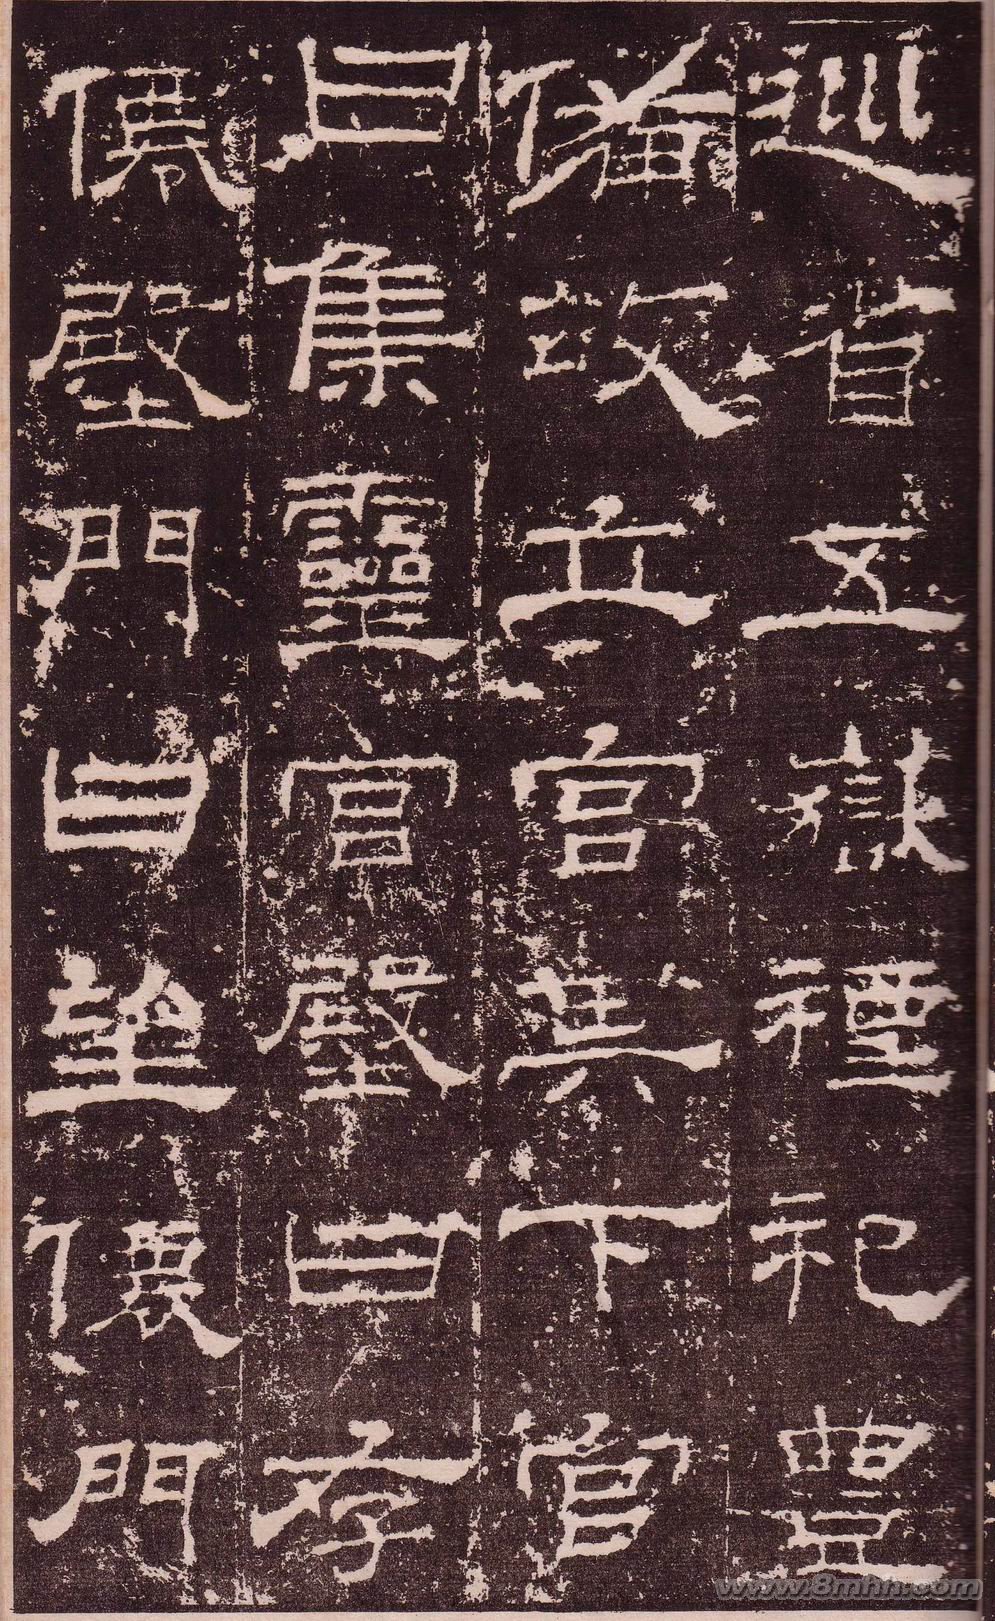 巡省五嶽禋祀豐
備故立宮其下宮
曰集靈宮壂曰存
僊壂門曰望僊門
www.8mhh.com